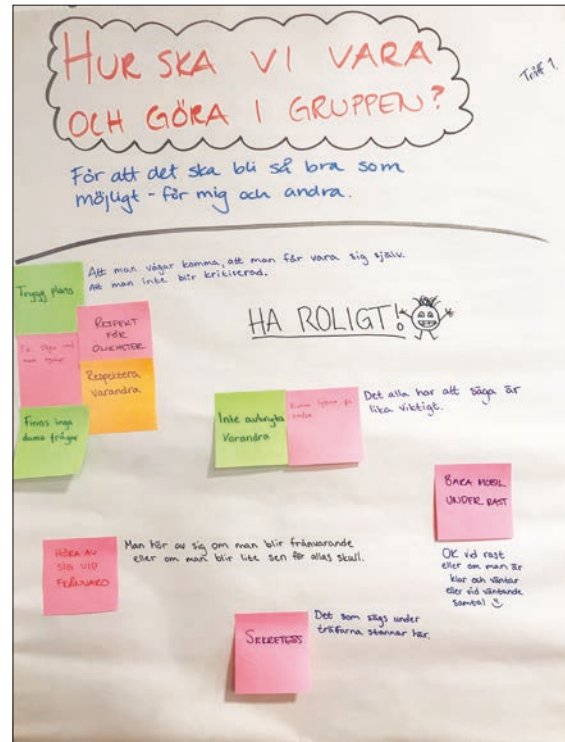 HUR SKA VI VARA
OCH GÖRA I GRUPPEN?
Träff 1.
För att det ska bli så bra som
möjligt - för mig och andra.
Trygg plats
Att man vågar komma, att man får vara sig själv.
Att man inte blir kritiserad.
RESPEKT
FÖR
OLIKHETER
HA ROLIGT!
Respektera
varandra
Finns inga
duma frågor
Inte avbryta
Varandra
Kunna lyssna på
andra
Det alla har att säga är
lika viktigt.
BARA MOBIL
UNDER RAST
OK vid rast
eller om man är
klar och väntar
eller vid väntande
samtal
HÖRA AV
SIG VID
FRÅNVARO
Man hör av sig om man blir frånvarande
eller om man blir lite sen för allas skull.
SEKRETESS
Det som sägs under
träffarna stannar här.